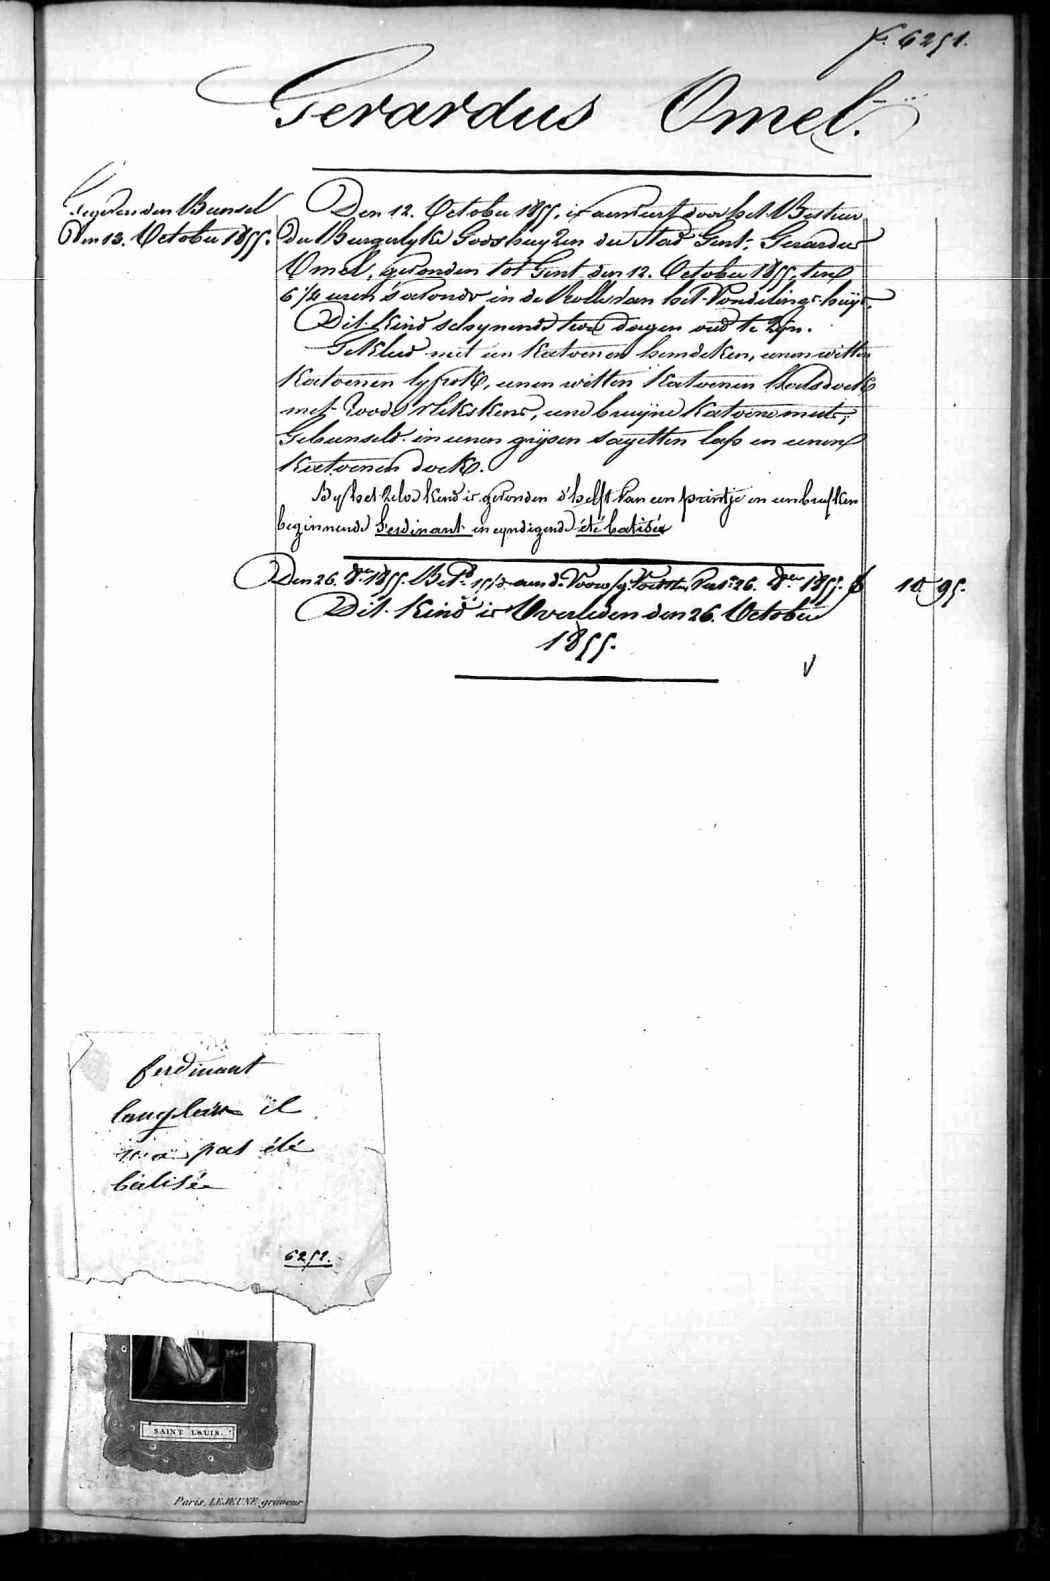 f.º 6251.
Gerardus Omel.
Gegeven den Bunsel
Den 13. October 1855.
Den 12. October 1855, is aenveerd door het Bestier
der Burgerlyke Godshuyzen der Stad Gent, Gerardus
Omel, gevonden tot Gent den 12. October 1855, ten
6 1/2 uren s'avonds in de Rolle van het Vondelings-huys.
Dit kind schynende twee dagen oud te zijn.
Gekleed met een katoenen hemdeken, eenen witten
katoenen lyfrok, eenen witten katoenen halsdoek
met roode vlekskens, eene bruyne katoene muts;
Gebunseld in eenen grysen sayetten lap en eenen
katoenen doek.
By het zelve kind is gevonden d'helft van een printje en een briefken
beginnende ferdinant en eyndigende été batisée
Den 26. 8ber 1855. Bet.d aen de Voors/g 26. 8ber 1855. f 10 95.
Dit kind is Overleden den 26. October
1855.
ferdinant
langlois il
n'a pas été
batisée
6251.
SAINT LOUIS.
Paris, LEJEUNE graveur